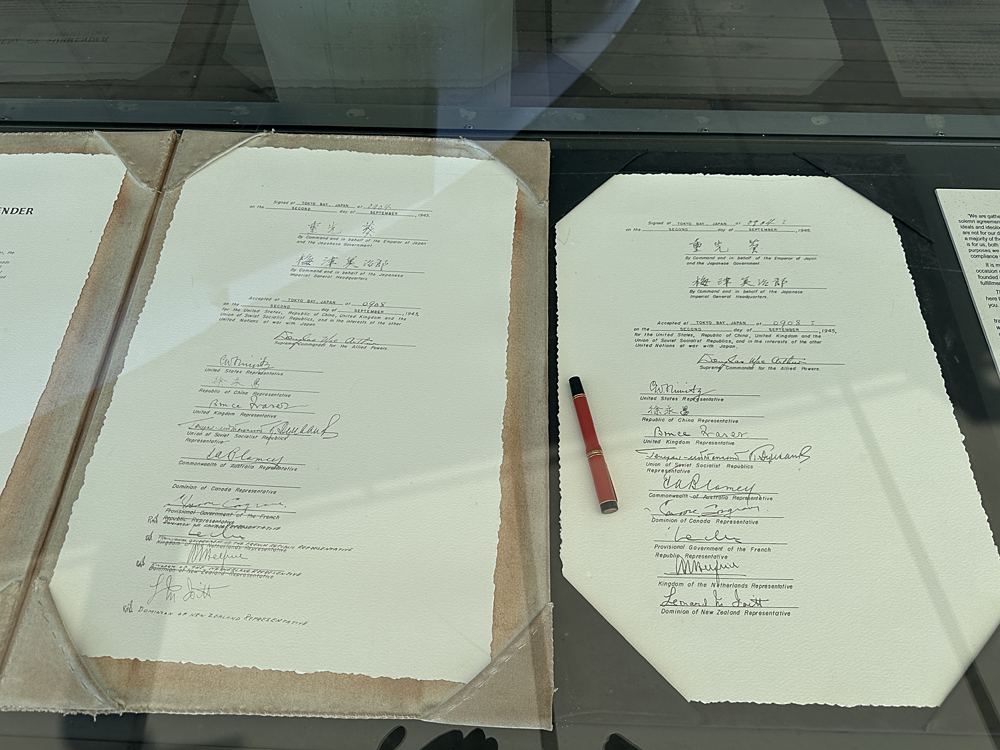 ENDER
Signed at TOKYO BAY, JAPAN at 0904
on the SECOND day of SEPTEMBER, 1945.
重光 葵
By Command and in behalf of the Emperor of Japan
and the Japanese Government.
梅津美治郎
By Command and in behalf of the Japanese
Imperial General Headquarters.
Accepted at TOKYO BAY, JAPAN at 0908
on the SECOND day of SEPTEMBER, 1945,
for the United States, Republic of China, United Kingdom and the
Union of Soviet Socialist Republics, and in the interests of the other
United Nations at war with Japan.
Douglas MacArthur
Supreme Commander for the Allied Powers.
CW Nimitz
United States Representative
徐永昌
Republic of China Representative
Bruce Fraser
United Kingdom Representative
Union of Soviet Socialist Republics
Representative
TA Blamey
Commonwealth of Australia Representative
Dominion of Canada Representative
Provisional Government of the French
Republic Representative
DOMINION OF CANADA REPRESENTATIVE
Leclerc
PROVISIONAL GOVERNMENT OF THE FRENCH REPUBLIC REPRESENTATIVE
Kingdom of the Netherlands Representative
Dominion of New Zealand Representative
DOMINION OF NEW ZEALAND REPRESENTATIVE
Signed at TOKYO BAY, JAPAN at 0904 I
on the SECOND day of SEPTEMBER, 1945.
重光 葵
By Command and in behalf of the Emperor of Japan
and the Japanese Government.
梅津美治郎
By Command and in behalf of the Japanese
Imperial General Headquarters.
Accepted at TOKYO BAY, JAPAN at 0908 I
on the SECOND day of SEPTEMBER, 1945,
for the United States, Republic of China, United Kingdom and the
Union of Soviet Socialist Republics, and in the interests of the other
United Nations at war with Japan.
Douglas MacArthur
Supreme Commander for the Allied Powers.
CW Nimitz
United States Representative
徐永昌
Republic of China Representative
Bruce Fraser
United Kingdom Representative
Union of Soviet Socialist Republics
Representative
TA Blamey
Commonwealth of Australia Representative
Dominion of Canada Representative
Leclerc
Provisional Government of the French
Republic Representative
Kingdom of the Netherlands Representative
Leonard M Isitt
Dominion of New Zealand Representative
"We are gathe
solemn agreemen
ideals and ideolo
are not for our d
a majority of the
is for us, both
purposes we
compliance
It is m
occasion
founded
fulfillmen